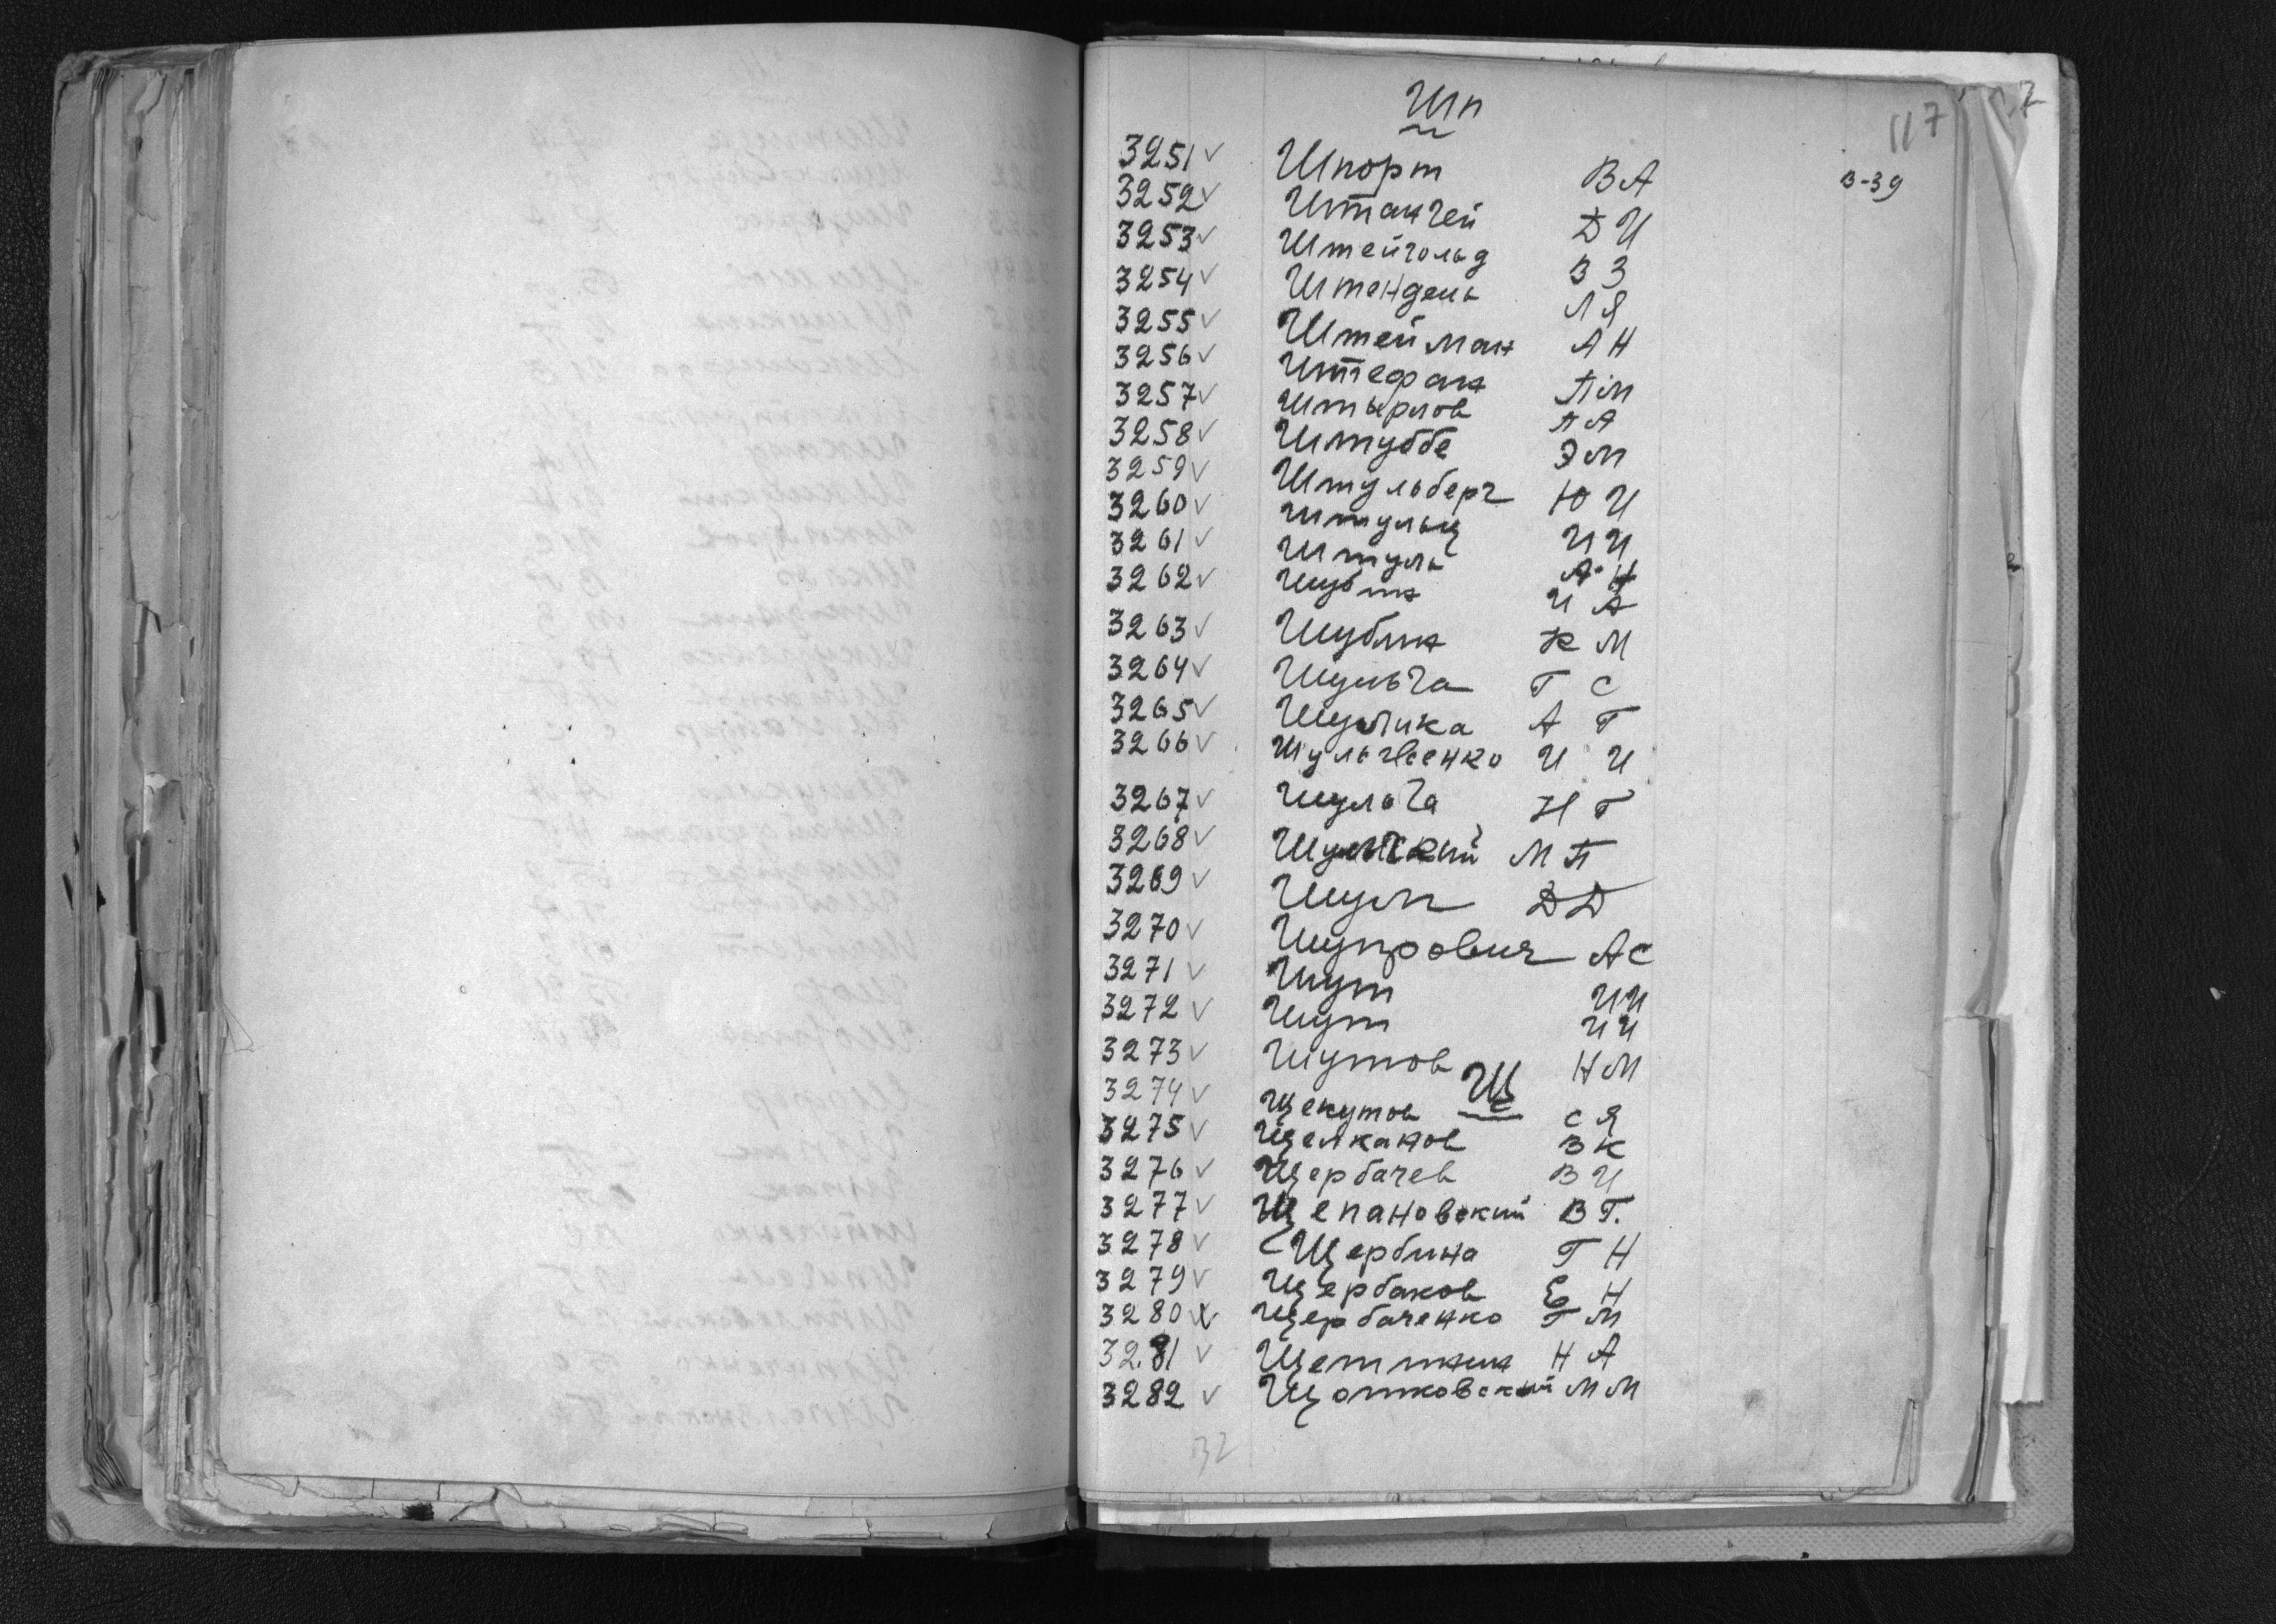 Шп
117
3251 ✓ Шпорт ВА в-39
3252 ✓ Штангей ДИ
3253 ✓ Штейгольд ВЗ
3254 ✓ Штендель ЛЯ
3255 ✓ Штейман АН
3256 ✓ Штефан ПМ
3257 ✓ Штырлов ПА
3258 ✓ Штуббе ЭМ
3259 ✓ Штульберг ЮИ
3260 ✓ Штульц ИИ
3261 ✓ Штуль АН
3262 ✓ Шубин ИА
3263 ✓ Шублин КМ
3264 ✓ Шульга ГС
3265 ✓ Шулика АГ
3266 ✓ Шульгвенко ИИ
3267 ✓ Шульга НГ
3268 ✓ Шульский МП
3269 ✓ Шум ДД
3270 ✓ Шупрович АС
3271 ✓ Шут ИИ
3272 ✓ Шут ИИ
3273 ✓ Шутов НМ
Щ
3274 ✓ Щекутов СЯ
3275 ✓ Щелканов ВК
3276 ✓ Щербачев ВИ
3277 ✓ Щепановский ВГ.
3278 ✓ Щербина ГН
3279 ✓ Щербаков ЕН
3280 Щербаченко ГМ
3281 ✓ Щетинин НА
3282 ✓ Щотковский ММ
32